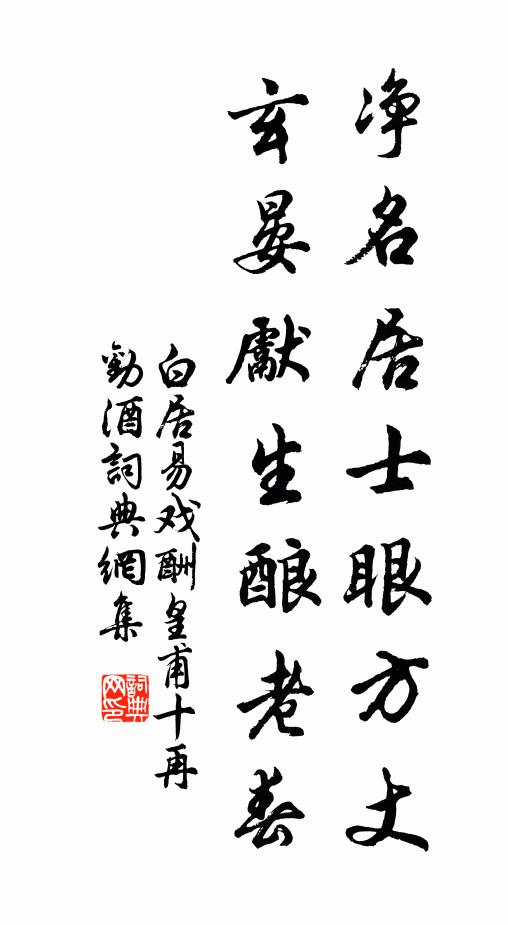 净名居士眼方丈
玄晏獻生酿老春
白居易戏酬皇甫十再
勸酒詞典網集
詞典
网印